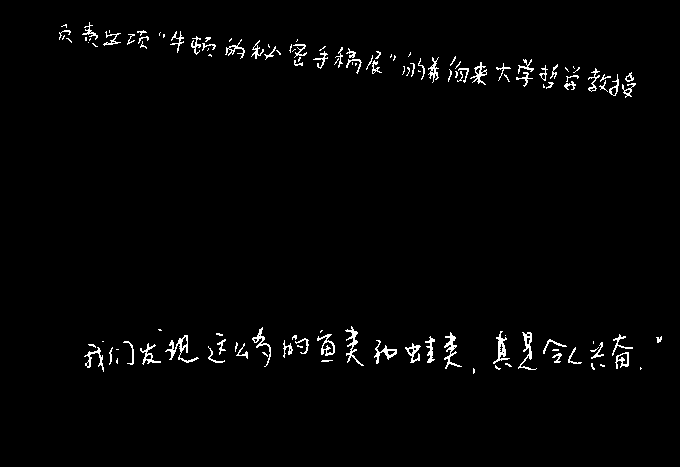 负责这项“牛顿的秘密手稿展”的希伯来大学哲学教授
我们发现这么多的鱼类和蛙类，真是令人兴奋。”